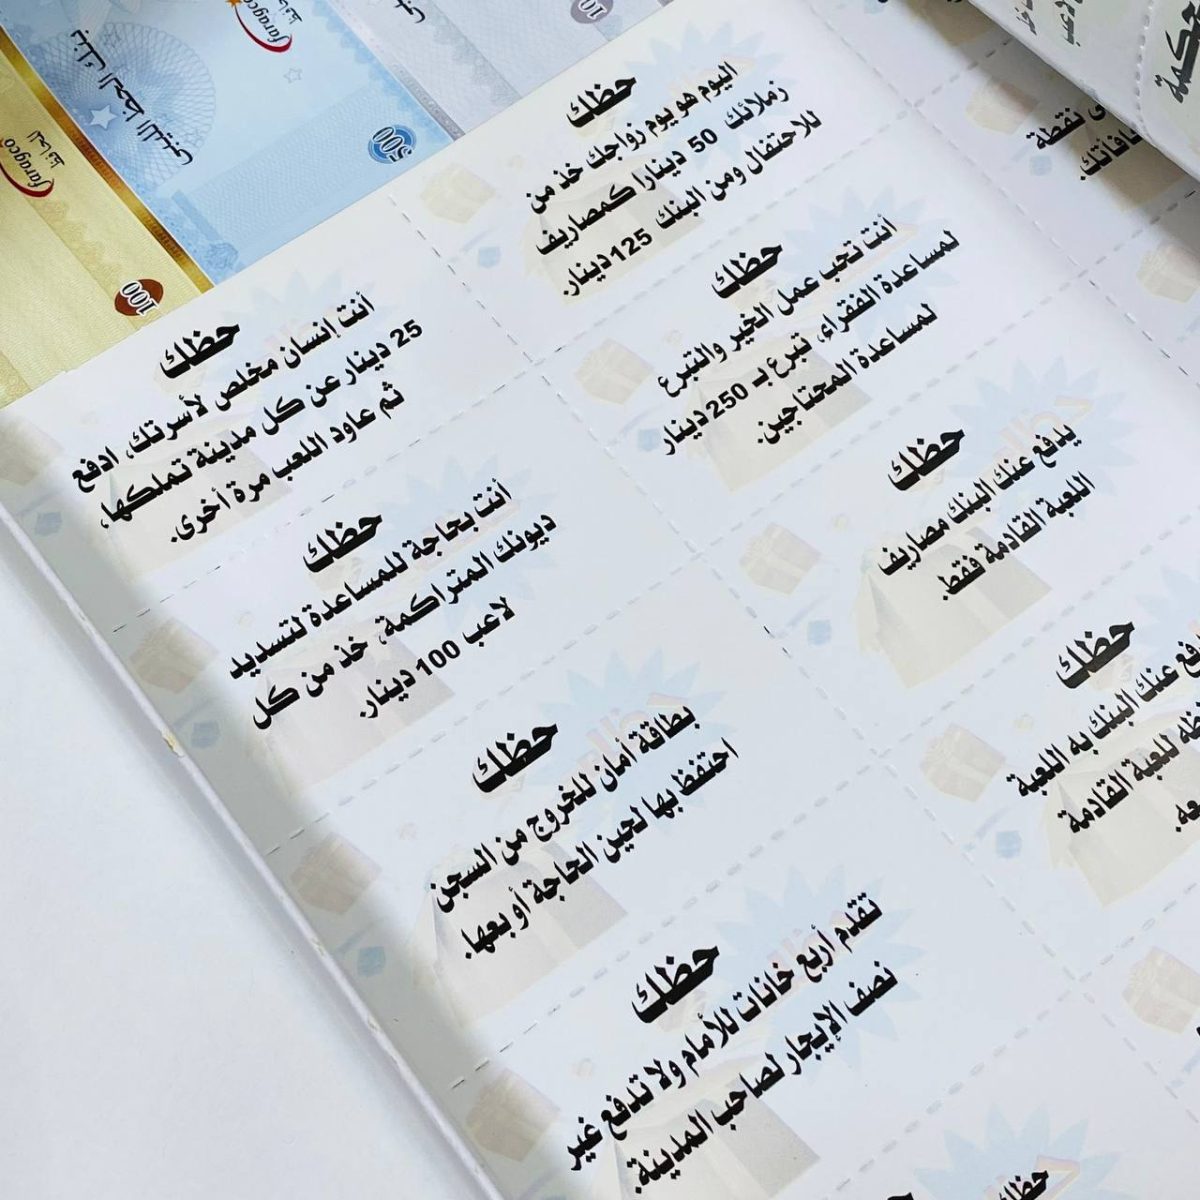 بنك الحظ الليبي
faragco
500
faragco
100
حظك
اليوم هو يوم زواجك خذ من
زملائك 50 دينارا كمصاريف
للاحتفال ومن البنك 125 دينار.
حظك
أنت إنسان مخلص لأسرتك، ادفع
25 دينار عن كل مدينة تملكها،
ثم عاود اللعب مرة أخرى.
حظك
أنت تحب عمل الخير والتبرع
لمساعدة الفقراء، تبرع بـ 250 دينار
لمساعدة المحتاجين.
حظك
أنت بحاجة للمساعدة لتسديد
ديونك المتراكمة، خذ من كل
لاعب 100 دينار.
حظك
يدفع عنك البنك مصاريف
اللعبة القادمة فقط.
حظك
بطاقة أمان للخروج من السجن
احتفظ بها لحين الحاجة أو بعها.
حظك
عنك البنك به اللعبة
للعبة القادمة
حظك
تقدم أربع خانات للأمام ولا تدفع غير
نصف الإيجار لصاحب المدينة.
حظك
نقطة